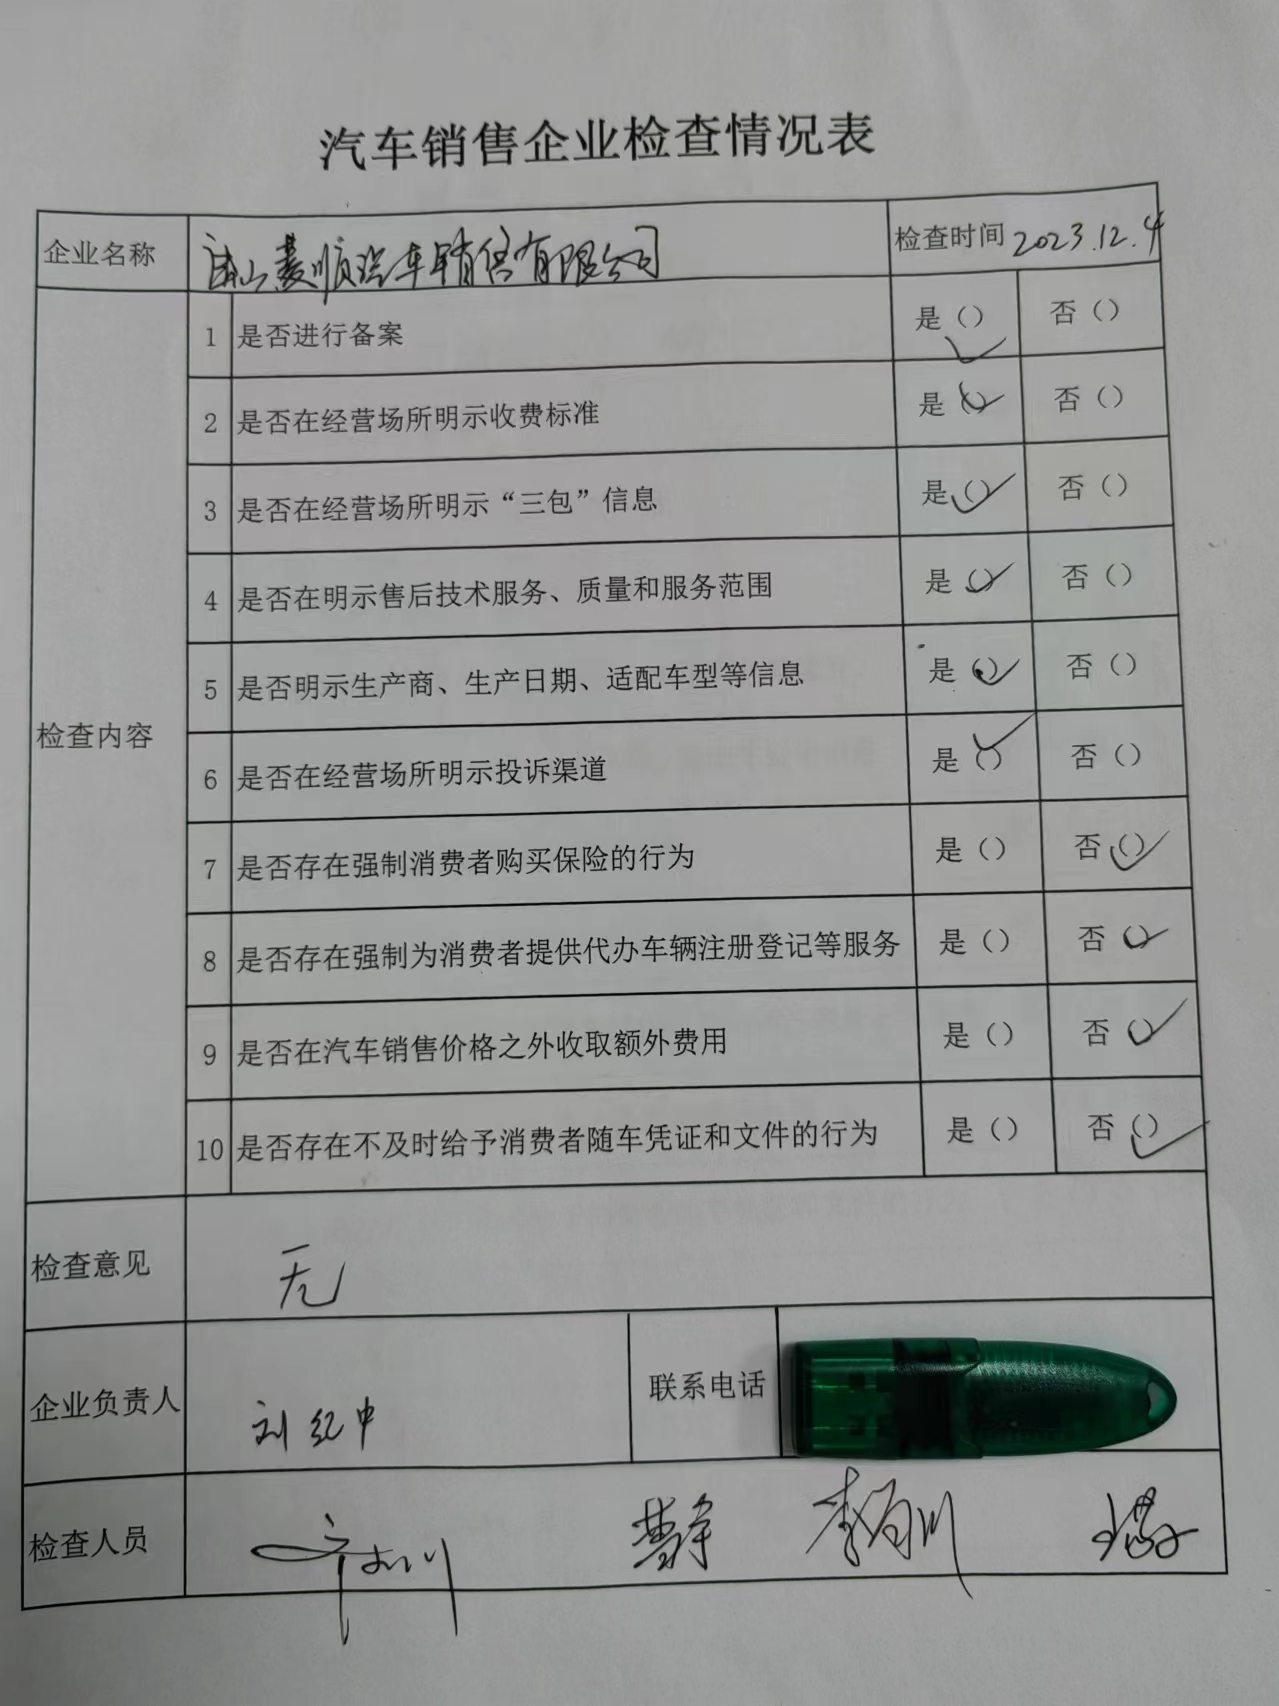 汽车销售企业检查情况表
企业名称 唐山菱顺汽车销售有限公司 检查时间 2023.12.4
检查内容
1 是否进行备案 是() 否()
2 是否在经营场所明示收费标准 是() 否()
3 是否在经营场所明示“三包”信息 是() 否()
4 是否在明示售后技术服务、质量和服务范围 是() 否()
5 是否明示生产商、生产日期、适配车型等信息 是() 否()
6 是否在经营场所明示投诉渠道 是() 否()
7 是否存在强制消费者购买保险的行为 是() 否()
8 是否存在强制为消费者提供代办车辆注册登记等服务 是() 否()
9 是否在汽车销售价格之外收取额外费用 是() 否()
10 是否存在不及时给予消费者随车凭证和文件的行为 是() 否()
检查意见 无
企业负责人 刘纪中 联系电话
检查人员